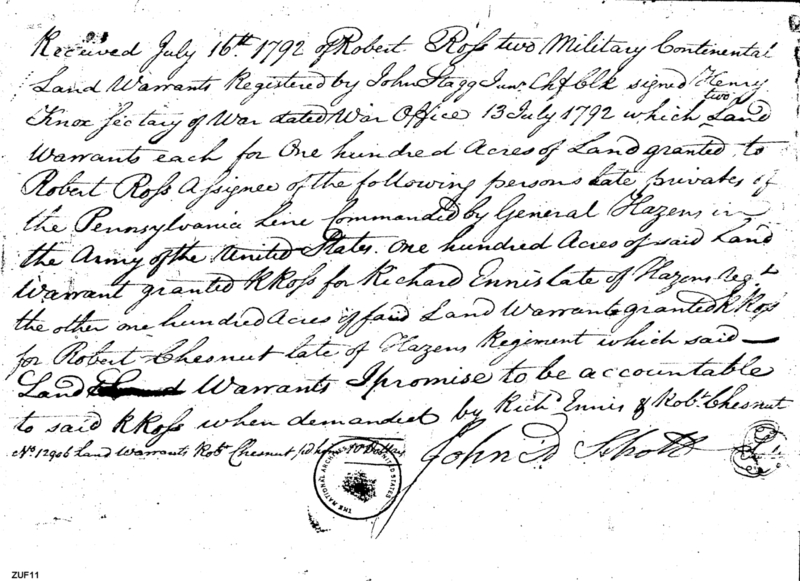 Received July 16th 1792 of Robert Ross two Military Continental
Land Warrants Registered by John Stagg Junr Chf Clk signed Henry
Knox Sectary of War dated War Office 13 July 1792 which two Land
Warrants each for One hundred Acres of Land granted to
Robert Ross Assignee of the following persons late privates of
the Pennsylvania Line Commanded by General Hazens in
the Army of the United States. One hundred Acres of said Land
Warrant granted R Ross for Richard Ennis late of Hazens Regt
the other one hundred Acres of said Land Warrants granted R Ross
for Robert Chesnut late of Hazens Regiment which said
Land Warrants I promise to be accountable
to said R Ross when demanded by Richd Ennis & Robt Chesnut
No. 12906 Land Warrants Robt Chesnut 10 Dollars
John D Schott
THE NATIONAL ARCHIVES UNITED STATES
ZUF11